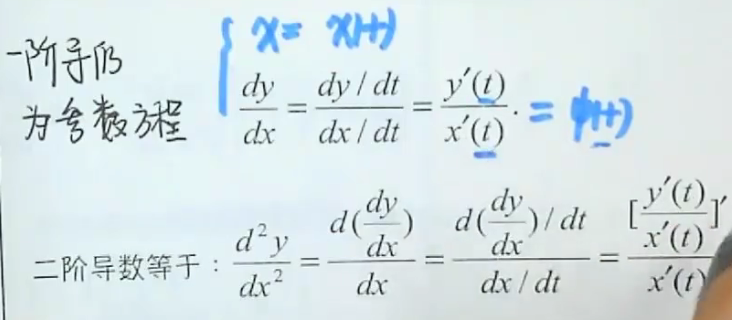 x = x(t)
一阶导仍
为含参数方程
dy/dx = (dy/dt)/(dx/dt) = y′(t)/x′(t). = φ(t)
二阶导数等于：d²y/dx² = d(dy/dx)/dx = (d(dy/dx)/dt)/(dx/dt) = [y′(t)/x′(t)]′/x′(t)